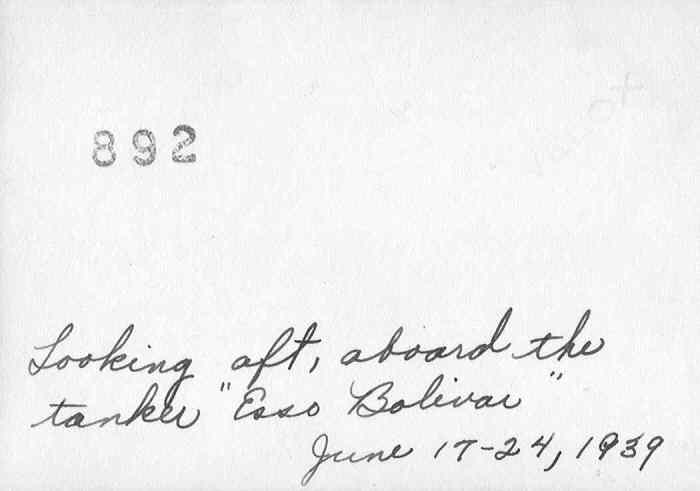 892
Looking aft, aboard the
tanker "Esso Bolivar"
June 17-24, 1939